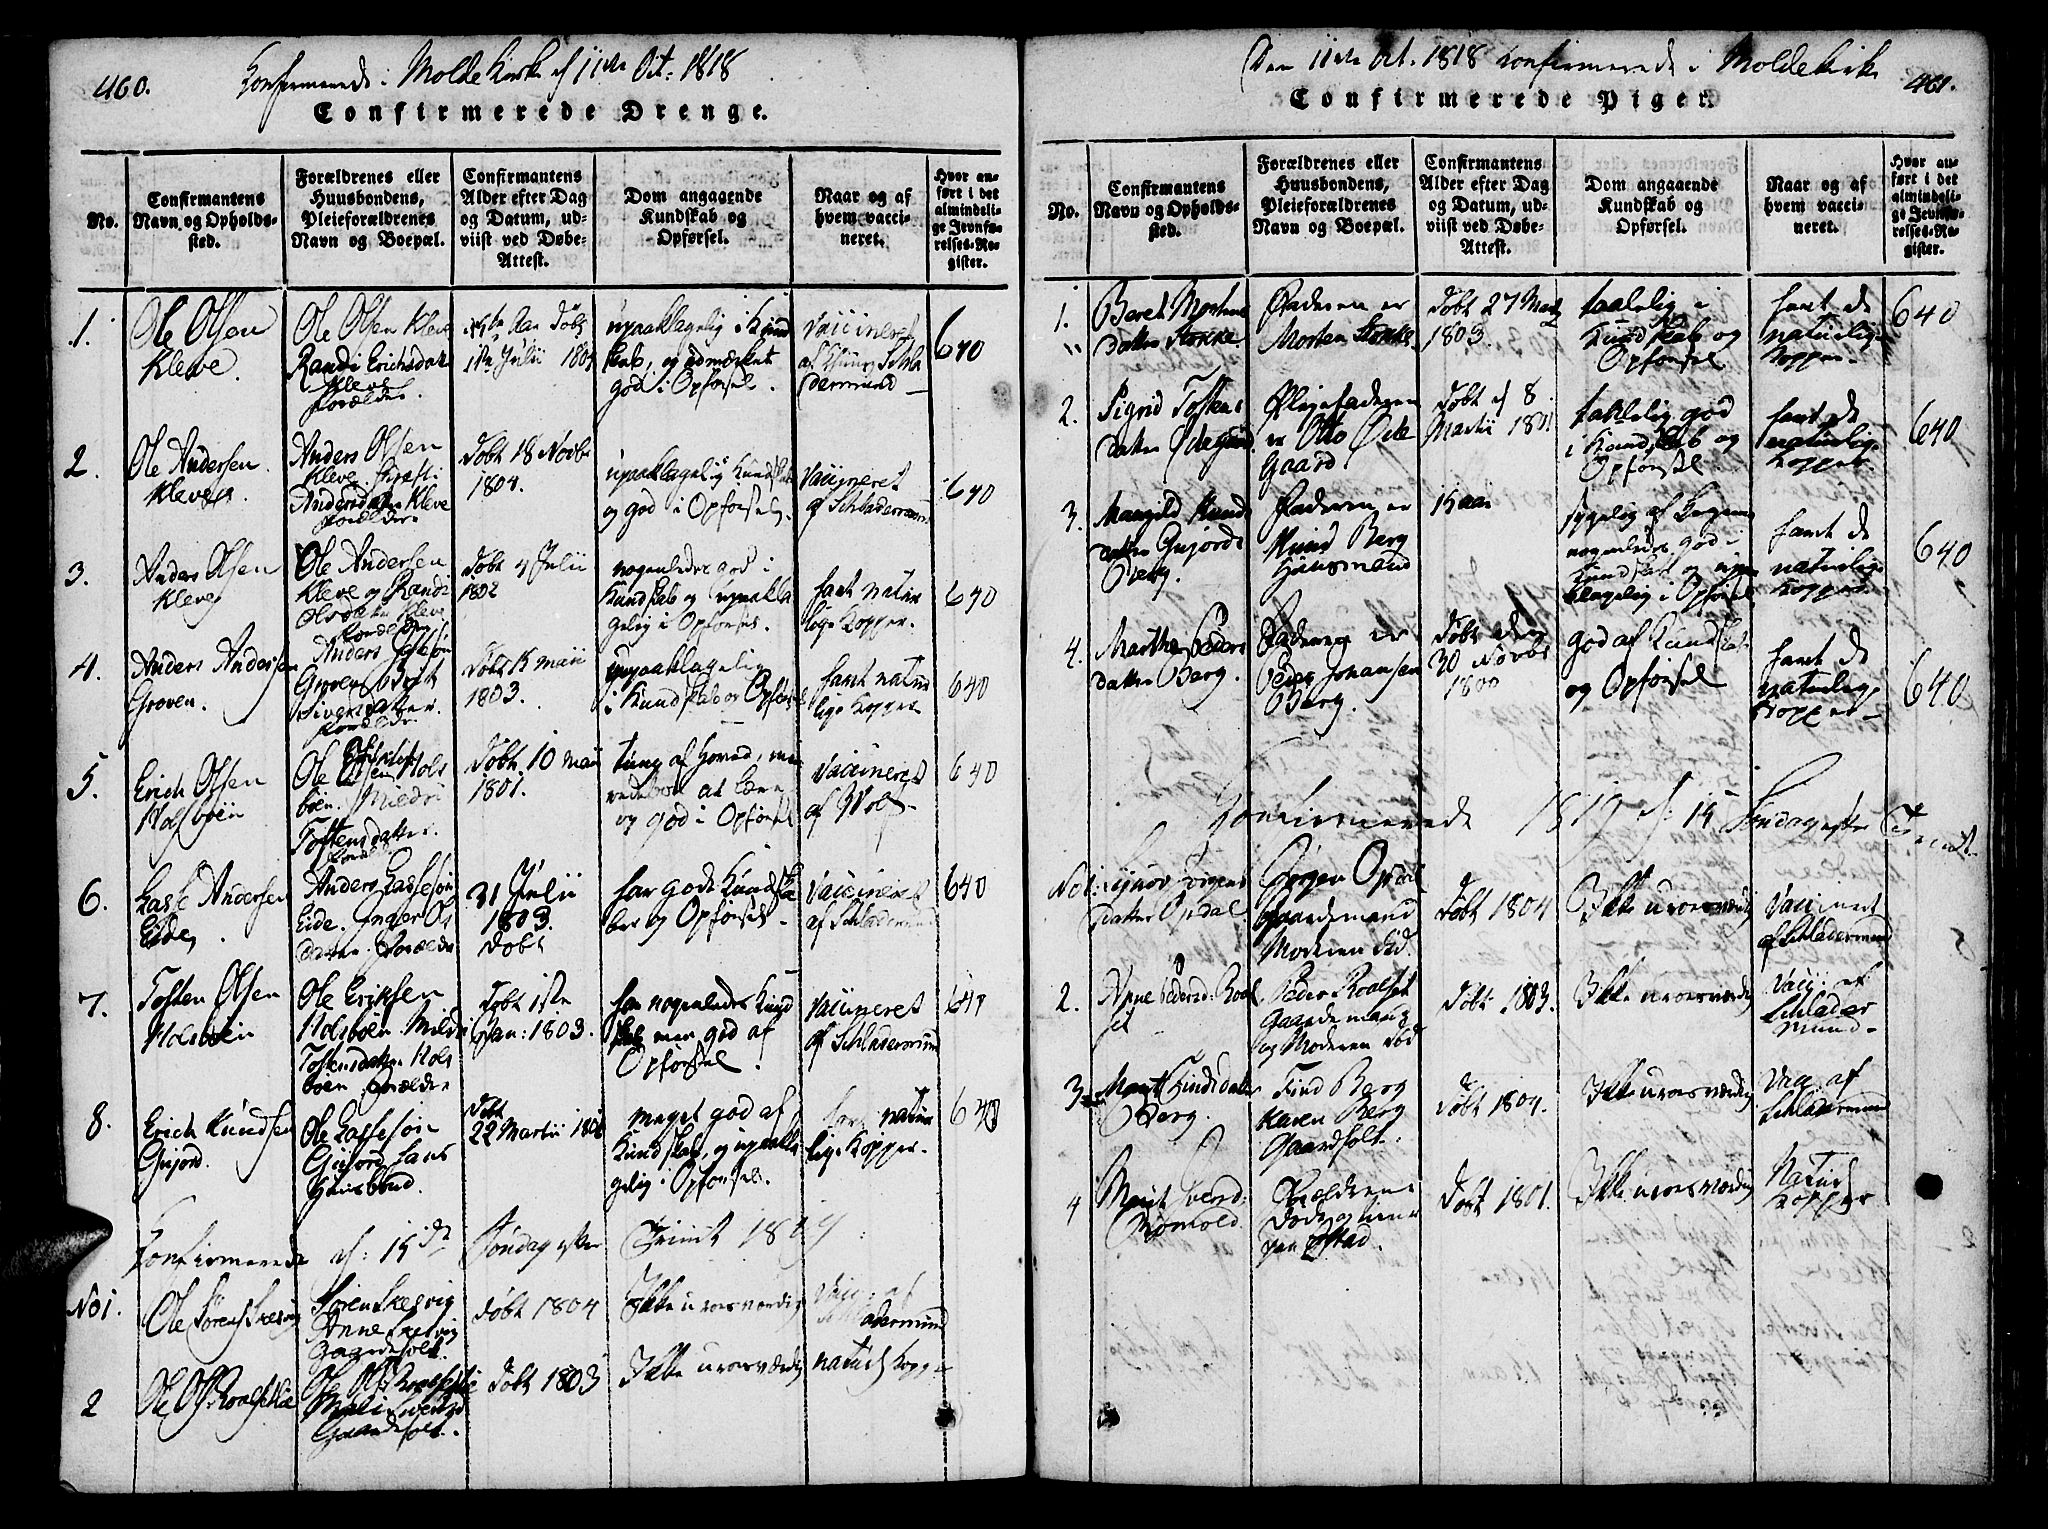 460.
Confirmerede i Molde Kirke d 11te Oct: 1818
Confirmerede Drenge.
No.
Confirmantens Navn og Opholdssted.
Forældrenes eller Huusbondens, Pleieforældrenes Navn og Boepæl.
Confirmantens Alder efter Dag og Datum, udviist ved Døbe-Attest.
Dom angaaende Kundskab og Opførsel.
Naar og af hvem vaccineret.
Hvor anført i det almindelige Jevnførelses-Register.
1.
Ole Olsen
Kleve.
Ole Olsen Kleve
Randi Erichsdatter
Kleve
Forældre.
Døbt
1ste Julii 1804
upaaklagelig i Kund
skab, og udmærket
god i Opførsel.
Vaccineret
af Schla
dermund
640
2.
Ole Andersen
Kleve
Anders Olsen
Kleve.
Andersdatter Kleve
Forældre
Døbt 18 Novbr
1804.
upaaklagelig Kundskab
og god i Opførsel.
Vaccineret
af Schladermund
640
3.
Anders Olsen
Kleve
Ole Andersen
Kleve og Randi
Olsdatter Kleve
Forældre
Døbt 4 Julii
1802
nogenledes god i
Kundskab og upaakla
gelig i Opførsel.
havt natur
lige Kopper.
640
4.
Anders Andersen
Groven.
Anders
Groven. Berit
Siversdatter.
Forældre
Døbt 15 Maii
1803.
upaaklagelig
i Kundskab og Opførsel
havt natur
lige Kopper
640
5.
Erich Olsen
Holsbøen
Ole Hols
bøen. Mildri
Tostensdatter.
Forældre
Døbt 10 Maii
1801.
tung af Hoved,
at lære
og god i Opførsel
Vaccineret
af Wol
640
6.
Lasse Andersen
Eide
Anders Lassesøn
Eide. Inger Ols
datter. Forældre
31 Julii
1803.
Døbt
har gode Kundska
ber og Opførsel
Vaccineret
af Schladermund
640
7.
Tosten Olsen
Holsbøen
Ole Eriksen
Holsbøen. Mildri
Tostensdatter Hols
bøen Forældre
Døbt 1ste
Jan: 1803.
har nogenledes Kund
skab men god af
Opførsel
Vaccineret
af Schladermund
641
8.
Erich Knudsen
Gujord.
Ole Lassesøn
Gujord hans
Huusbond.
Døbt
22 Martii
meget god af
Kundskab, og upaakla
gelig i Opførsel.
havt natur
lige Kopper.
640
Confirmerede d: 15de Søndag efter Trinit 1819
No 1.
Ole Sørens
Søren
Anne
Gaardfolk.
Døbt 1804
Ikke uroesværdig
Vacc: af
Schladermund
2
Ole Ols:
Ole Ols:
Gaardfolk.
Døbt 1803
Ikke uroesværdig
naturl Kopper
Den 11te Oct. 1818 confirmerede i Molde Kirke
461.
Confirmerede Piger.
No.
Confirmantens Navn og Opholdssted.
Forældrenes eller Huusbondens, Pleieforældrenes Navn og Boepæl.
Confirmantens Alder efter Dag og Datum, udviist ved Døbe-Attest.
Dom angaaende Kundskab og Opførsel.
Naar og af hvem vaccineret.
Hvor anført i det almindelige Jevnførelses-Register.
1.
Beret Mortens
datter Stokke.
Faderen er
Morten Stokke
Døbt 27 Martz
1803.
taalelig i
Kundskab og
Opførsel
havt de
naturlige
Kopper
640
2.
Sigrid Tostens
datter Ødegaard
Pleiefaderen
er Otto Øde
gaard
Døbt d 8
Martii 1801
taalelig god
i Kundskab og
Opførsel.
havt de
naturlige
Kopper.
640
3.
Knuds
datter Gujord
Berg.
Faderen er
Knud Berg
Huusmand
15 aar
nogenledes god i
Kundskab og upaa
klagelig i Opførsel
havt de
naturlige
Kopper
640
4.
Marthe Peders
datter Berg.
Faderen er
Peder Johansen
Berg.
Døbt den
30 Novbr
1800
god af Kundskab
og Opførsel
havt de
naturlige
Kopper
640
Confirmerede 1819 d: 15 Søndag efter Trinit
No 1.
Jørgens
datter Opdal.
Jørgen Opdal
Gaardmand
Moderen død.
Døbt 1804
Ikke uroesværdig
Vaccineret
af Schladermund
2.
Anne Pedersd: Roal
set
Peder Roalset
Gaardmand
og Moderen død
Døbt 1803.
Ikke uroesværdig
Vacc: af
Schlader
mund
3.
Marit Findsdatter
Berg.
Find Berg
Karen Berg
Gaardfolk.
Døbt 1804.
Ikke uroesværdig
Vacc: af
Schladermund
4
Marit
Forældrene
døde
Døbt 1801.
Ikke uroesværdig
Naturl
Kopper